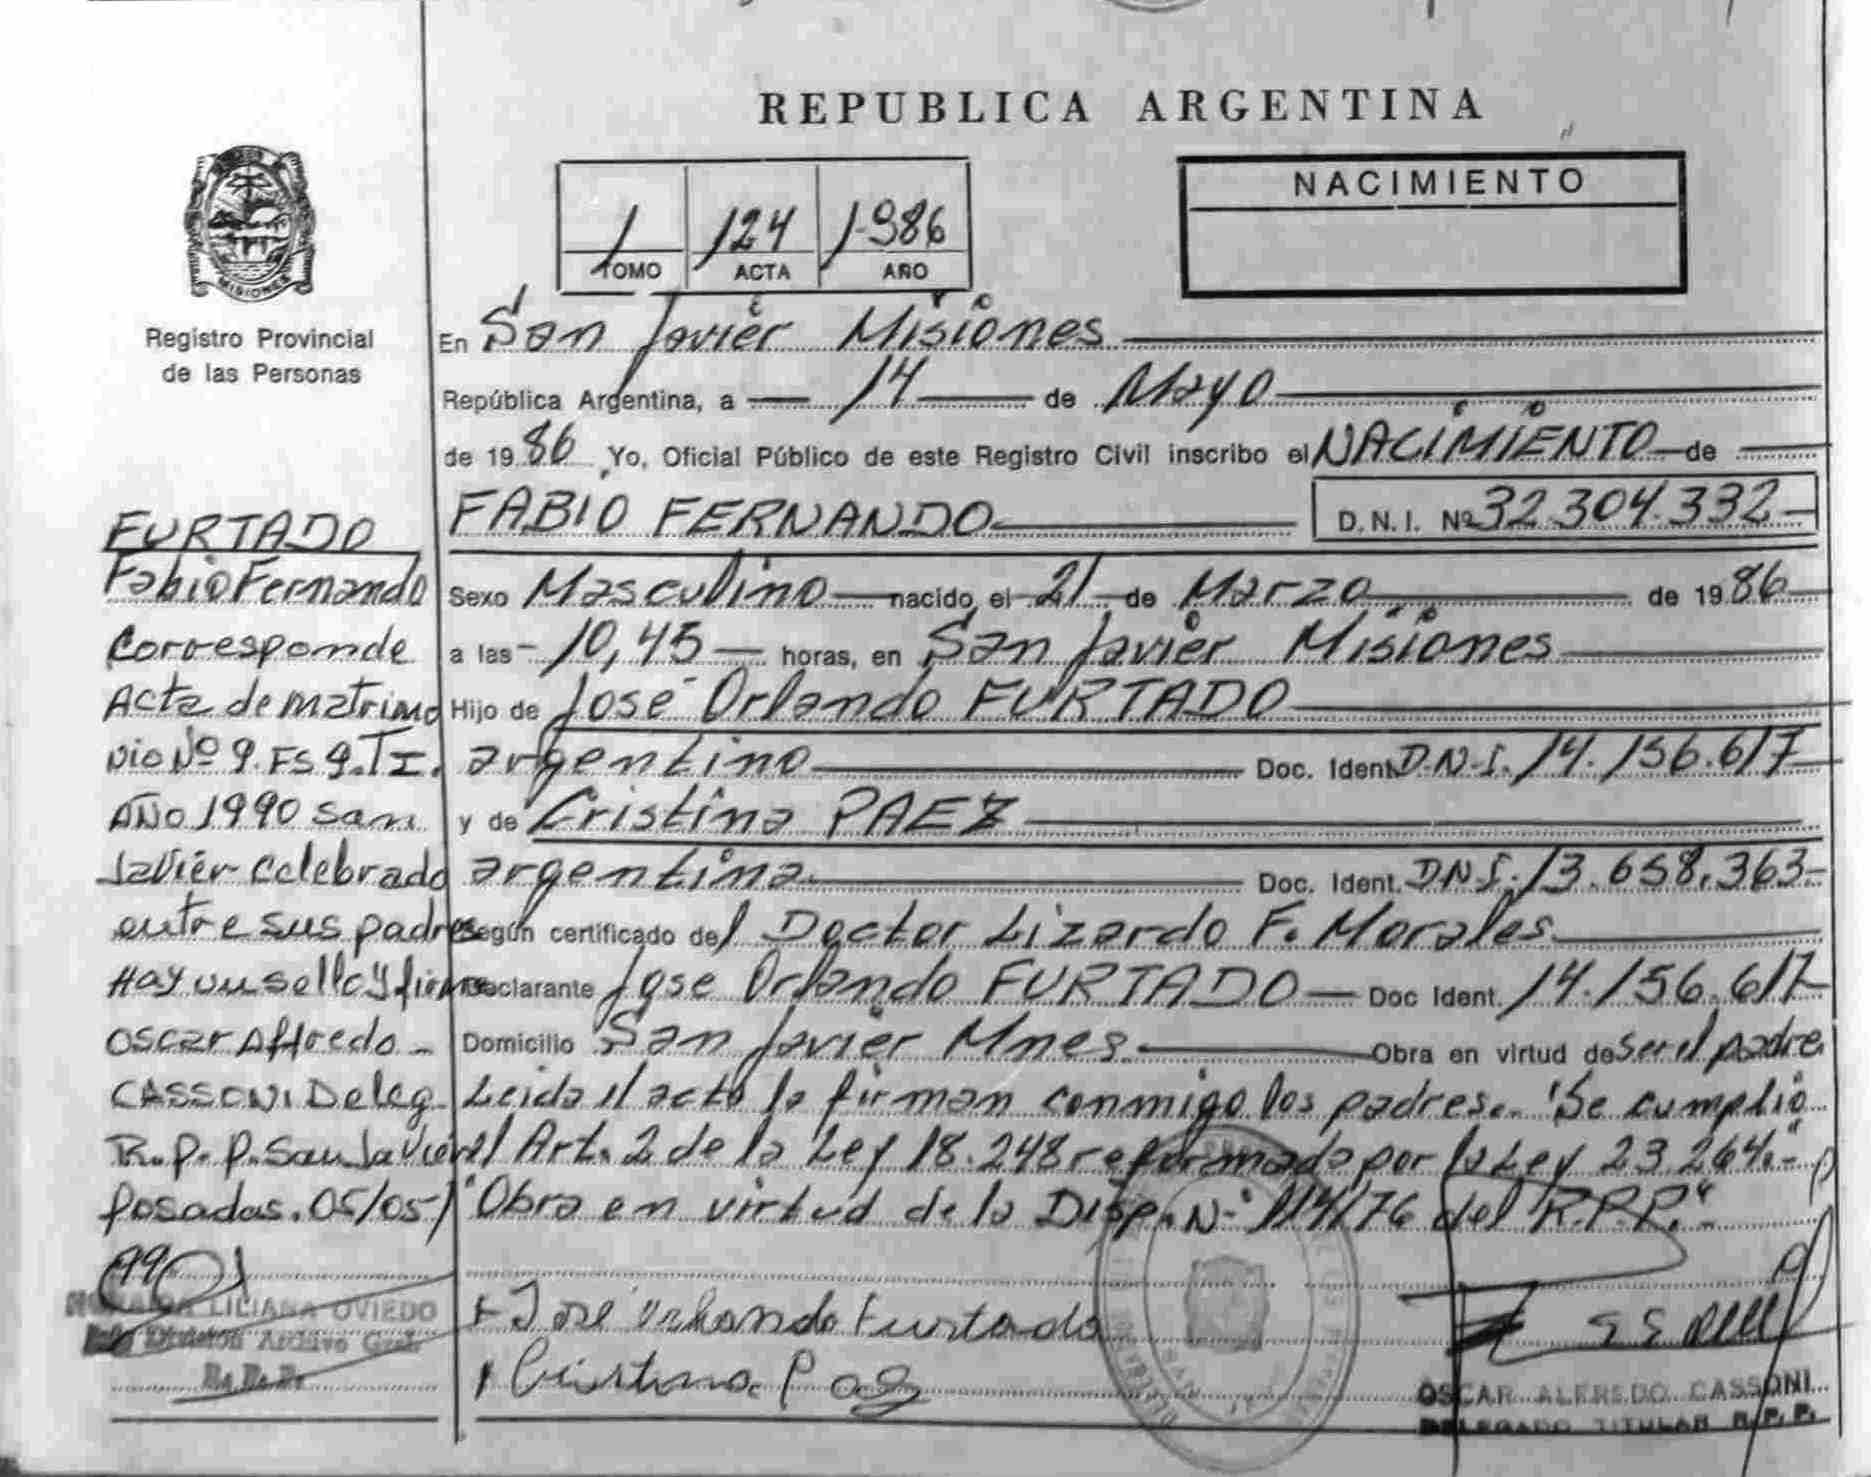 REPUBLICA ARGENTINA
1 124 1986
TOMO ACTA AÑO
NACIMIENTO
MISIONES
Registro Provincial
de las Personas
En San Javier Misiones
República Argentina, a 14 de Mayo
de 1986 Yo, Oficial Público de este Registro Civil inscribo el NACIMIENTO de
FABIO FERNANDO D.N.I. Nº 32.304.332
Sexo Masculino nacido el 21 de Marzo de 1986
a las 10,45 horas, en San Javier Misiones
Hijo de José Orlando FURTADO
argentino Doc. Ident. D.N.I. 14.156.617
y de Cristina PAEZ
argentina Doc. Ident. D.N.I. 13.658.363
Según certificado del Doctor Lizardo F. Morales
Declarante Jose Orlando FURTADO Doc Ident. 14.156.617
Domicilio San Javier Mnes Obra en virtud de Ser el padre
Leida el acta la firman conmigo los padres.- "Se cumplió
el Art. 2 de la Ley 18.248 reformada por la Ley 23.264.-"
"Obra en virtud de la Disp. Nº 114/76 del R.P.P."
José Orlando Furtado
Cristina Paez
OSCAR ALFREDO CASSONI
DELEGADO TITULAR R.P.P.
FURTADO
Fabio Fernando
Corresponde
Acta de matrimo
nio Nº 9. Fs 9. T I.
Año 1990 San
Javier Celebrado
entre sus padres
Hay un sello y firma
Oscar Alfredo -
CASSONI Deleg
R.P.P. San Javier
Posadas. 05/05/
LILIANA OVIEDO
División Archivo Gral.
R.P.P.